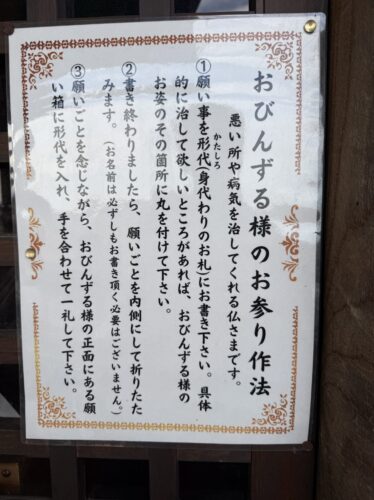 おびんずる様のお参り作法
悪い所や病気を治してくれる仏さまです。
①願い事を形代(身代わりのお札)にお書き下さい。具体
かたしろ
的に治して欲しいところがあれば、おびんずる様の
お姿のその箇所に丸を付けて下さい。
②書き終わりましたら、願いごとを内側にして折りたた
みます。(お名前は必ずしもお書き頂く必要はございません。)
③願いごとを念じながら、おびんずる様の正面にある願
い箱に形代を入れ、手を合わせて一礼して下さい。